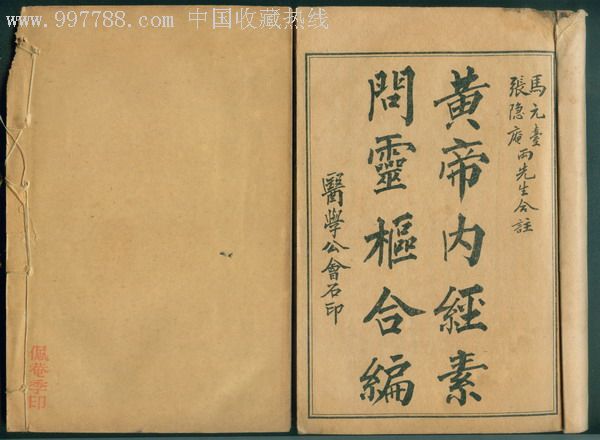 www.997788.com 中国收藏热线
馬元臺
張隐庵兩先生合註
黃帝内經素
問靈樞合編
醫學公會石印
佩菴季印